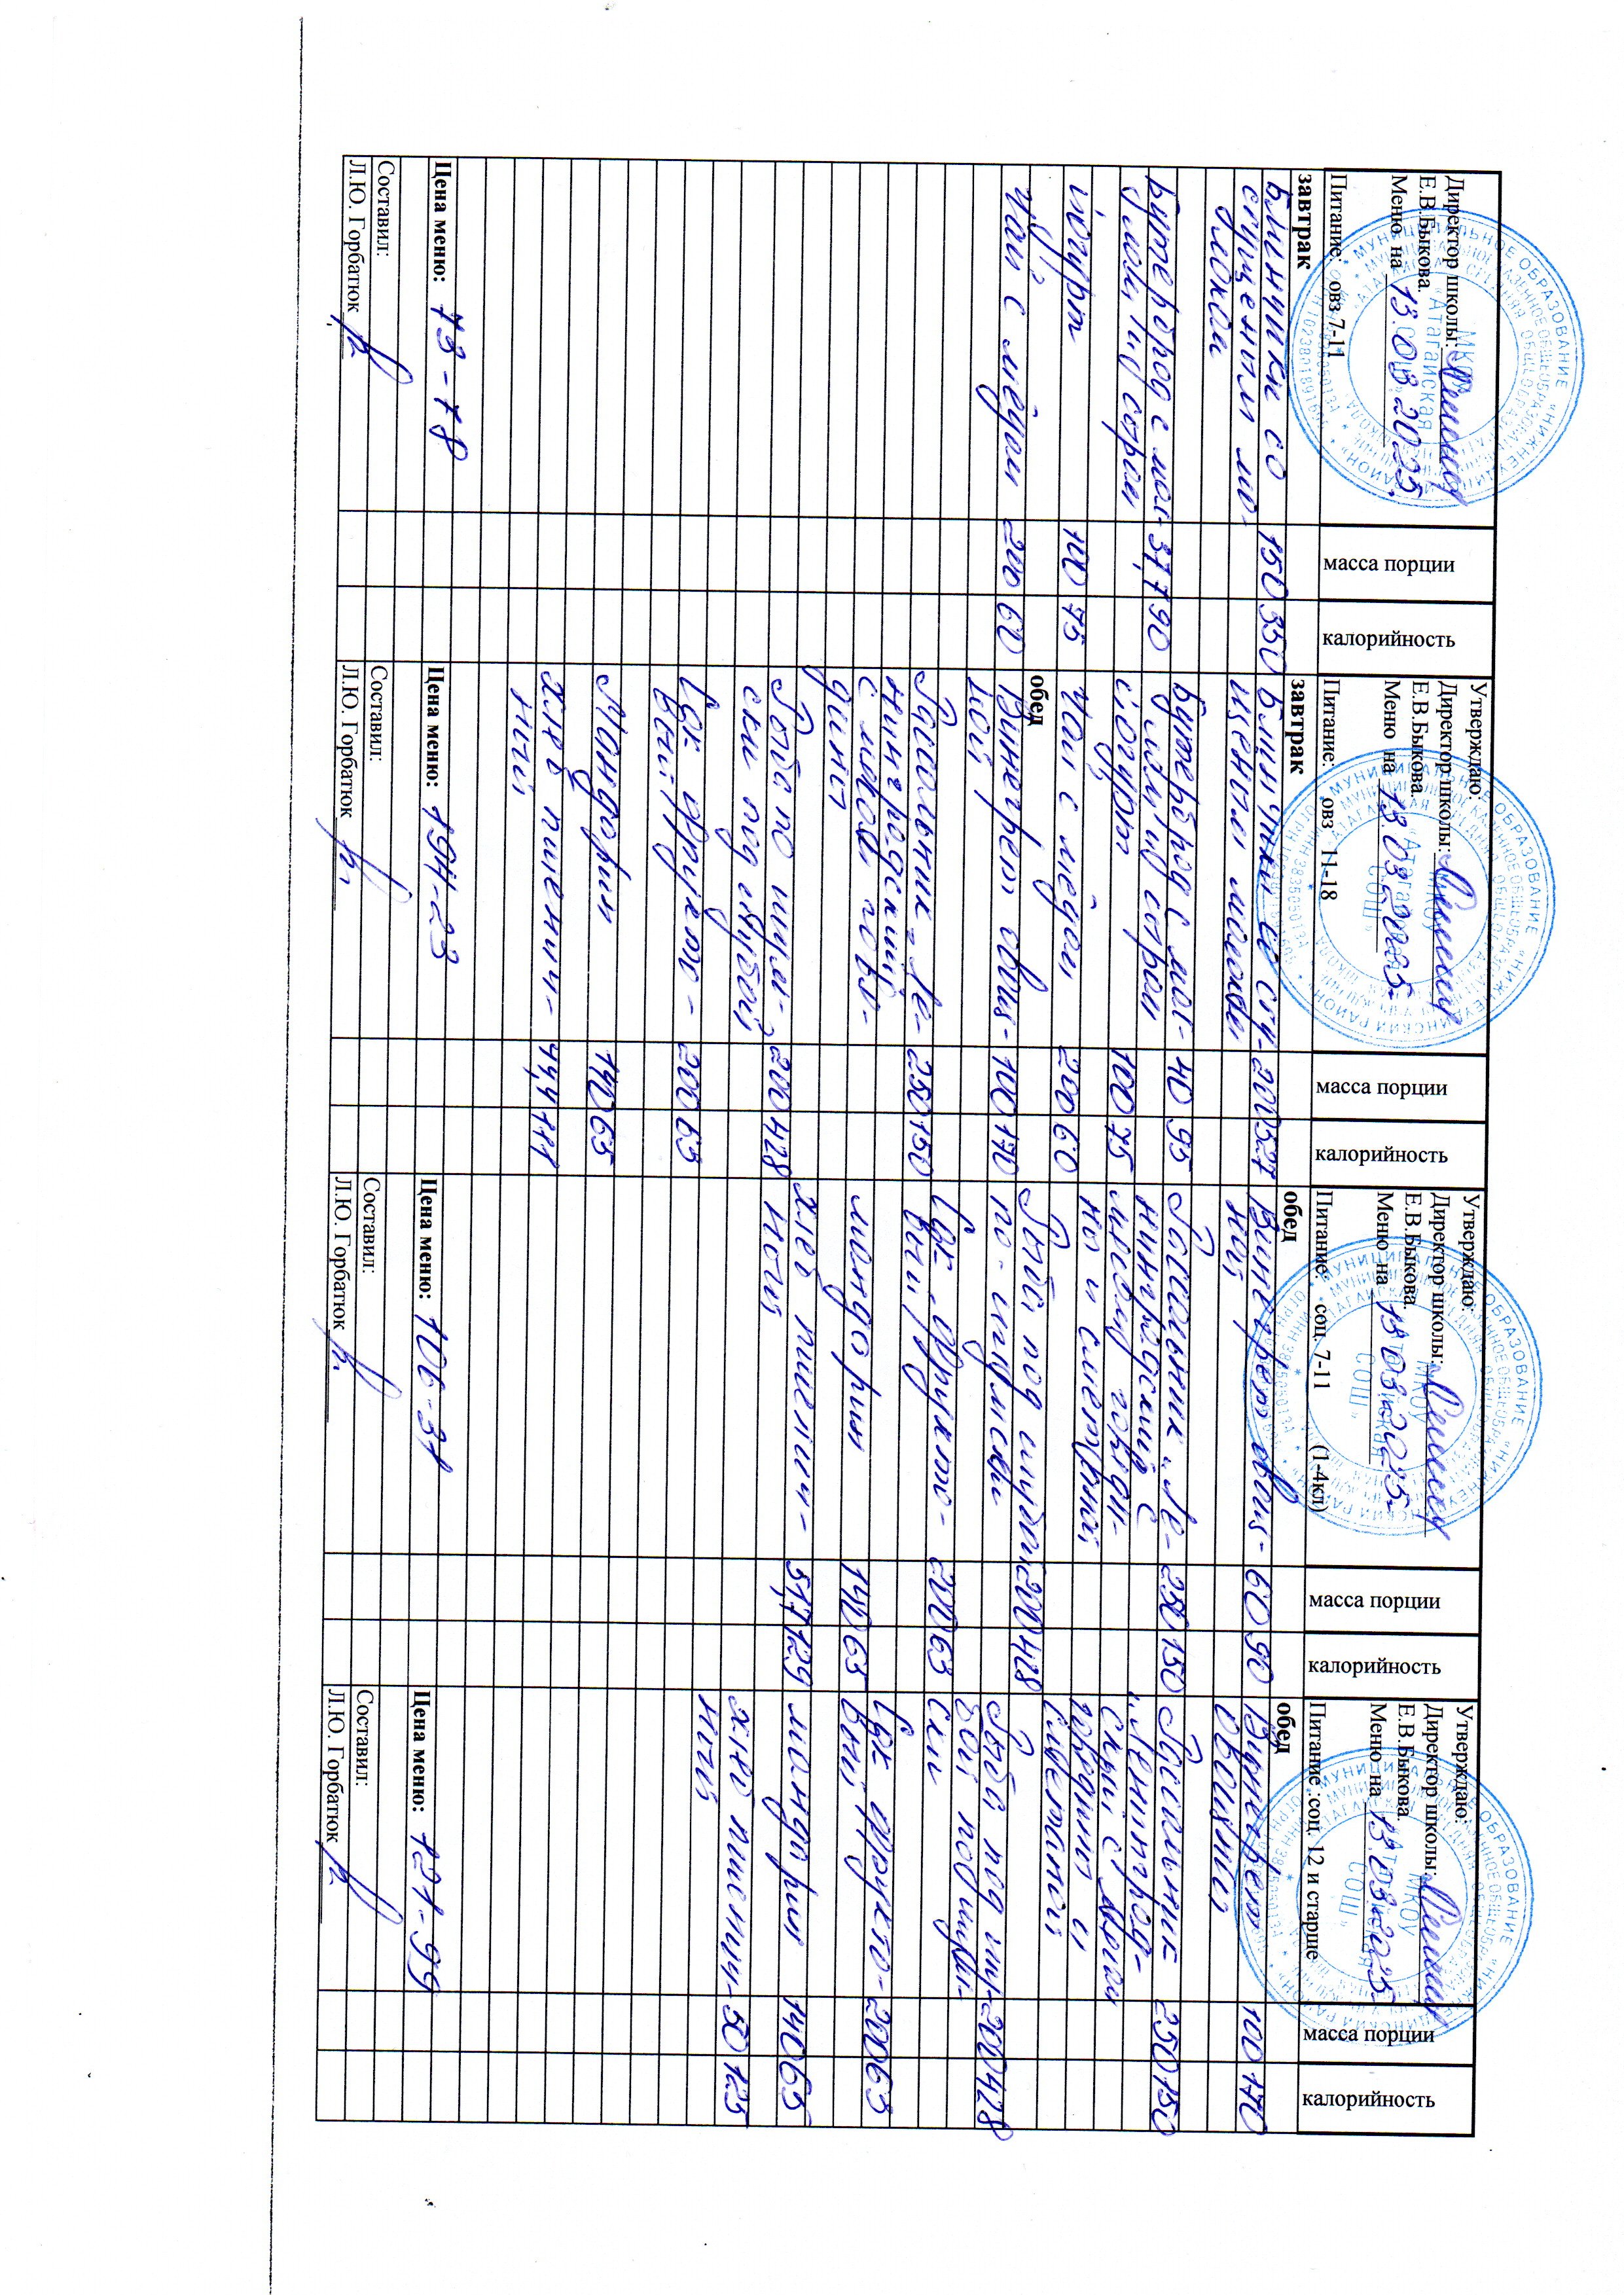 Директор школы:
Е.В.Быкова
Меню на 13.03.2025
Питание: овз 7-11
масса порции
калорийность
завтрак
Блинчики со 150 350
сгущенным мо-
локом
Бутерброд с мас- 37,7 90
лом, и сыром
йогурт 100 75
Чай с мёдом 200 60
Цена меню: 73-78
Составил:
Л.Ю. Горбатюк
Утверждаю:
Директор школы:
Е.В.Быкова
Меню на 13.03.2025
Питание: овз 11-18
масса порции
калорийность
завтрак
Блинчики со сгу- 200 527
щенным молоком
Бутерброд с мас- 40 95
лом, и сыром
йогурт 100 75
Чай с мёдом 200 60
обед
Винегрет овощ- 100 170
ной
Рассольник „Ле- 250 150
нинградский"
с мясом говя-
дины
Рыба по индий- 200 428
ски под шубой
Сок фрукто- 200 63
вый
Мандарин 140 65
Хлеб пшенич- 44,4 111
ный
Цена меню: 194-23
Составил:
Л.Ю. Горбатюк
Утверждаю:
Директор школы:
Е.В.Быкова.
Меню на 13.03.2025
Питание: соц. 7-11 (1-4кл)
масса порции
калорийность
обед
Винегрет овощ- 60 90
ной
Рассольник „Ле- 250 150
нинградский с
мясом говяди-
ны и сметаной
Рыба под шубой 200 428
по-индийски
Сок фрукто- 200 63
вый
мандарин 140 65
хлеб пшенич- 51,7 129
ный
Цена меню: 106-31
Составил:
Л.Ю. Горбатюк
Утверждаю:
Директор школы:
Е.В.Быкова
Меню на 13.03.2025
Питание :соц. 12 и старше
масса порции
калорийность
обед
Винегрет 100 170
овощной
Рассольник 250 150
„Ленинград-
ский с мясом
говядины и
сметаной
Рыба под шу- 200 428
бой по индий-
ски
Сок фрукто- 200 63
вый
мандарин 140 65
хлеб пшенич- 50 125
ный
Цена меню: 121-99
Составил:
Л.Ю. Горбатюк